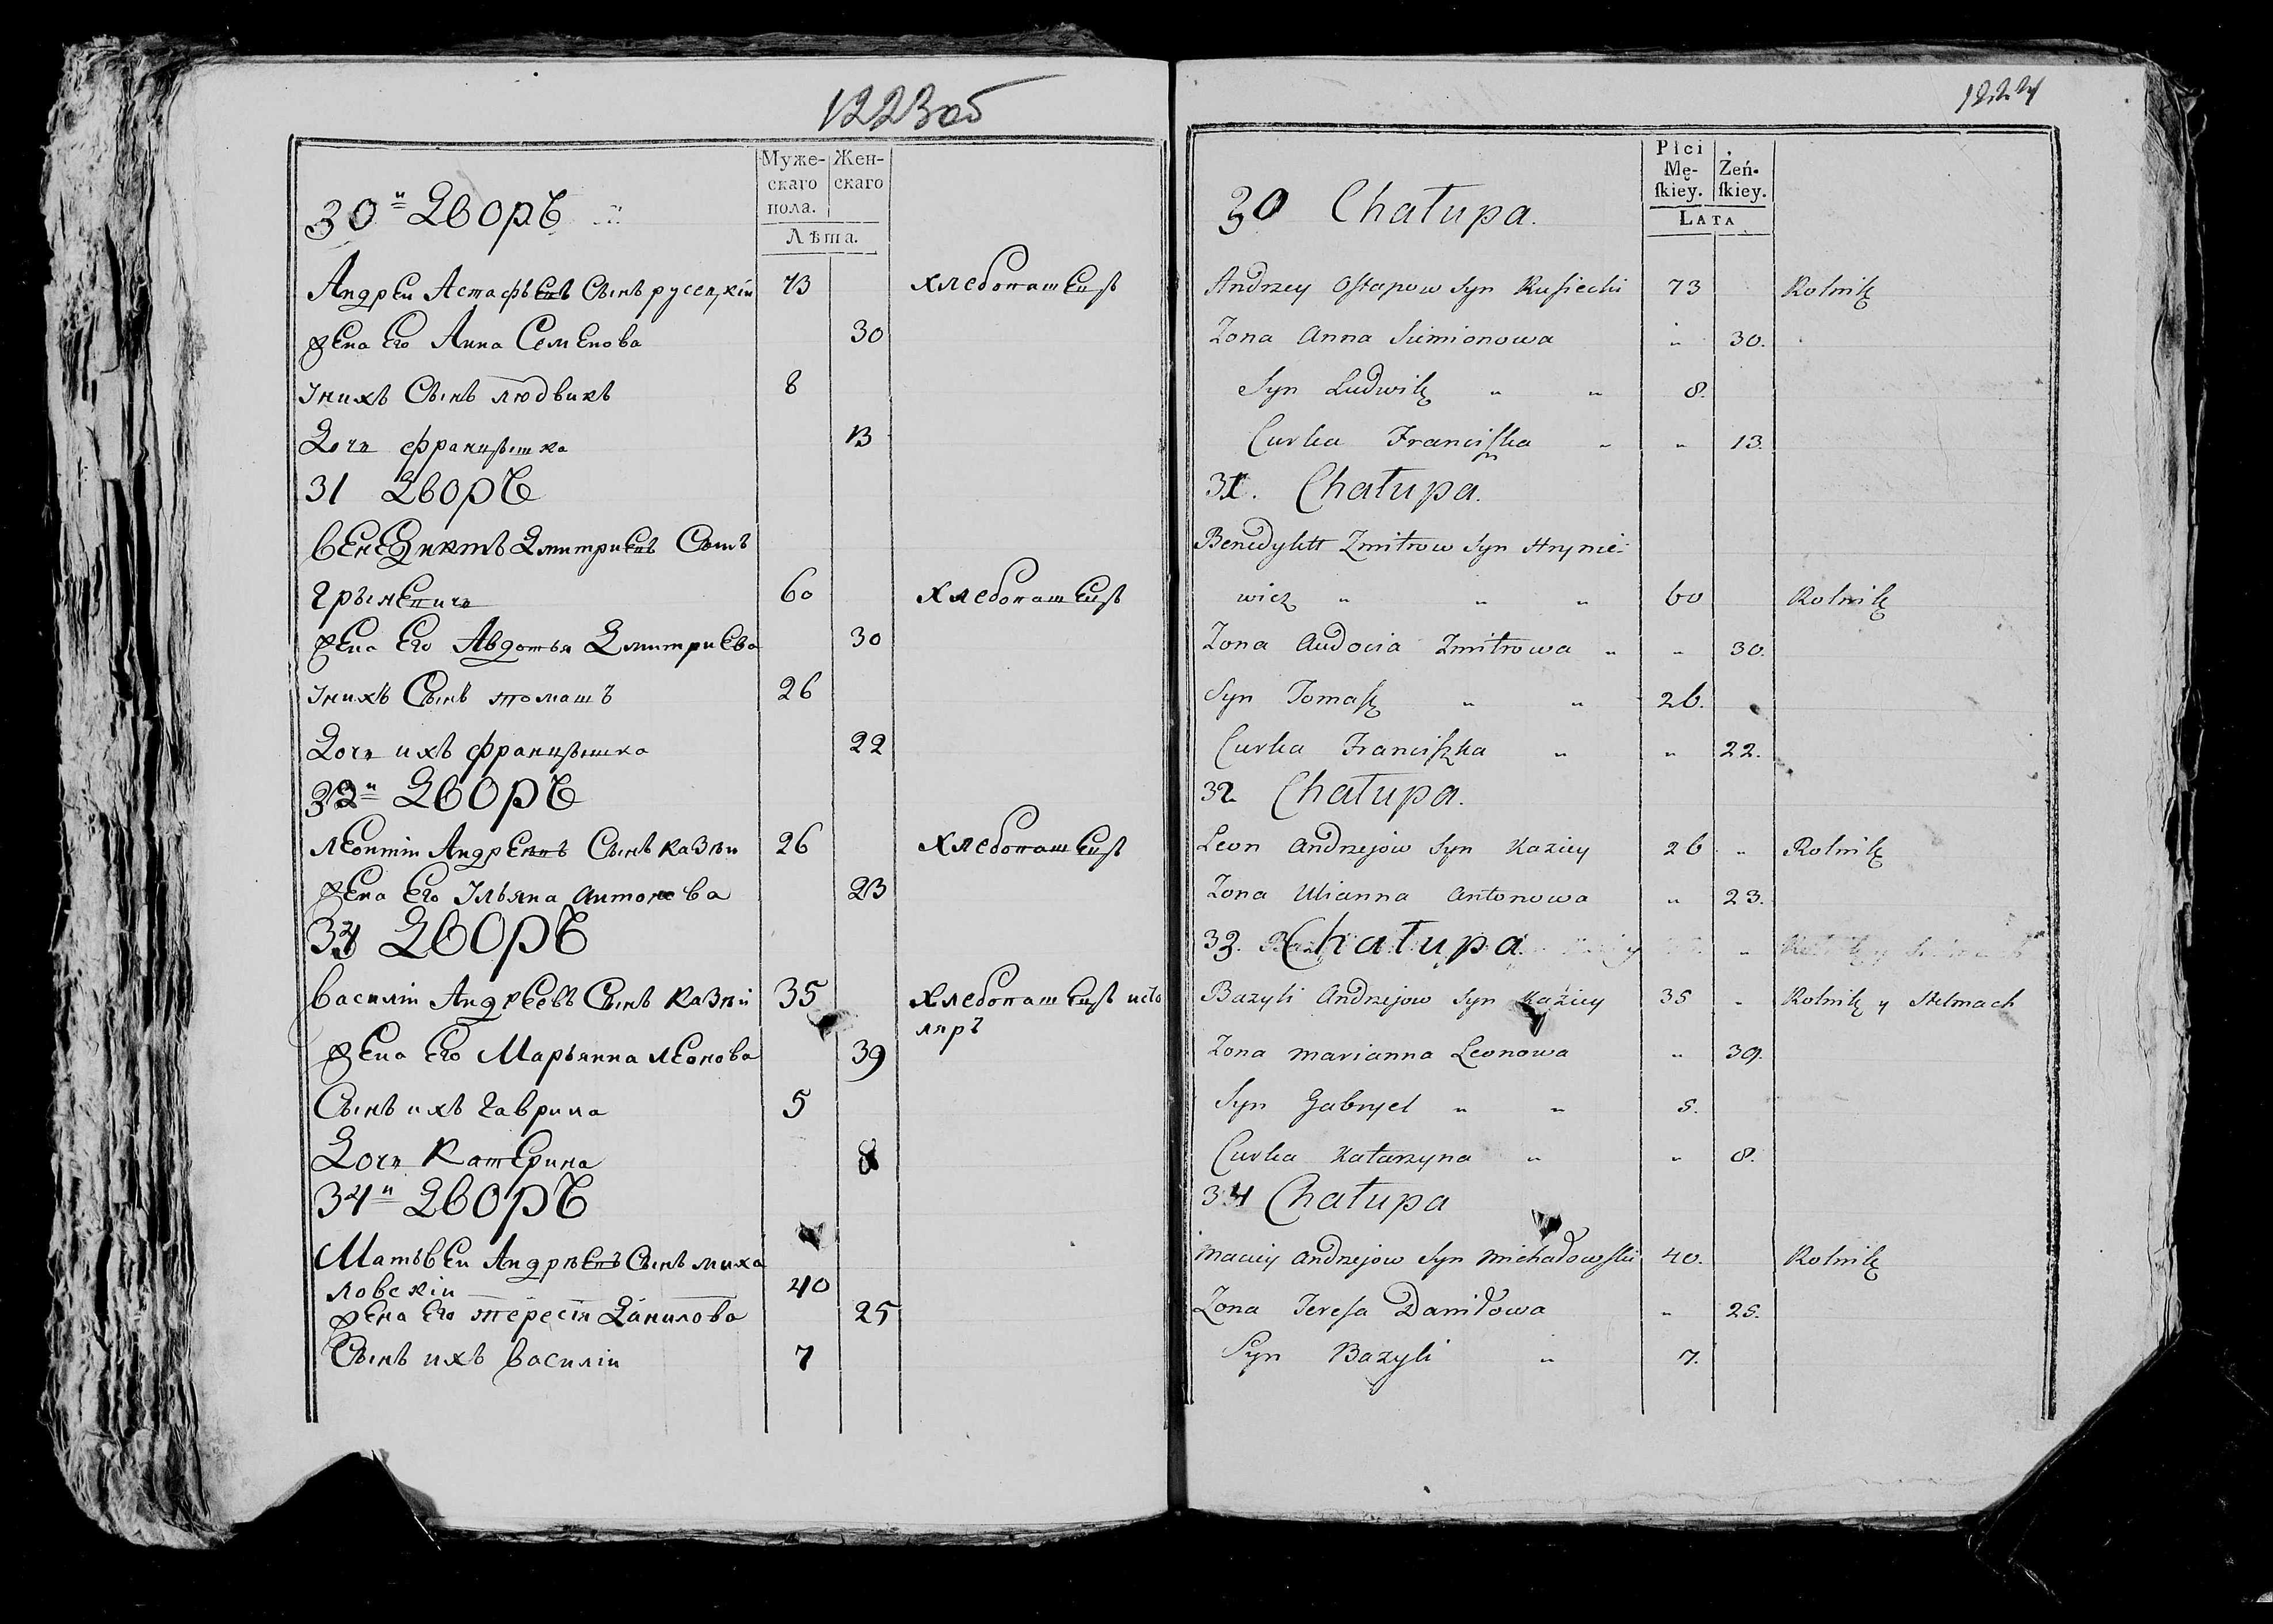 1223об
Муже- Жен-
скаго скаго
пола.
Лѣта.
30й Дворъ
Андрей Астафьевъ Сынъ русецкій 73 хлебопашецъ
жена Его Анна Семенова 30
Iнихъ Сынъ людвикъ 8
Дочь францышка 13
31 Дворъ
венедиктъ Дмитриевъ Сынъ
грыневичь 60 хлебопашецъ
жена Его Авдотья Дмитриева 30
Iнихъ Сынъ томашъ 26
Дочь ихъ францышка 22
32й Дворъ
леонтiи Андреевъ Сынъ казѣи 26 хлебопашецъ
жена Его Iльяна антонова 23
33 Дворъ
василiи Андреевъ Сынъ казѣй 35 хлебопашецъ исто
ляръ
жена Его Марьянна леонова 39
Сынъ ихъ гаврила 5
Дочь Катерина 8
34й Дворъ
Матьвеи Андреевъ Сынъ миха
ловскiи 40
жена Его тересiя Данилова 25
Сынъ ихъ василiи 7
1224
Płci
Mę- Żeń-
ſkiey. ſkiey.
Lata
30 Chałupa.
Andrzey Oſtapow Syn Ruſiecki 73 Rolnik
Zona Anna Simionowa " 30.
Syn Ludwik " " 8.
Curka Franciſka " " 13.
31. Chałupa.
Benedyktt Zmitrow Syn Hrynie-
wicz " " " 60 Rolnik
Zona Audocia Zmitrowa " " 30.
Syn Tomaſz " " 26.
Curka Franciſzka " " 22.
32 Chałupa.
Leon Andrzejow Syn Kaziey 26 " Rolnik
Zona Ulianna Antonowa " 23.
33. Chałupa.
Bazyli Andrzejow Syn Kaziey 35 " Rolnik y Stelmach
Zona Marianna Leonowa " 39.
Syn Gabryel " " 5.
Curka Katarzyna " " 8.
34 Chałupa
Maciey Andrzejow Syn Michałowſki 40. Rolnik
Zona Tereſa Daniłowa " 25.
Syn Bazyli " 7.